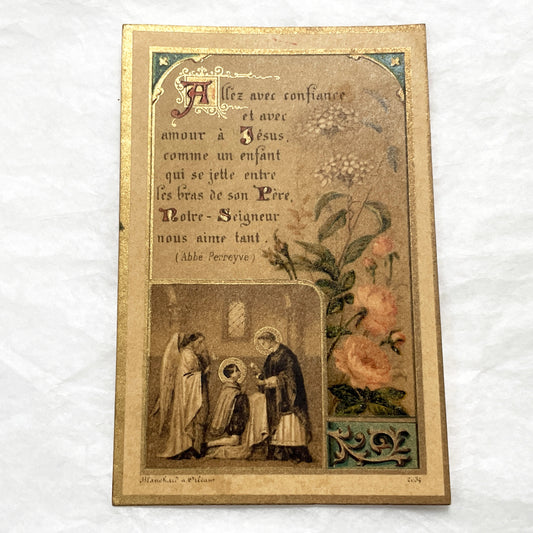 Allez avec confiance
et avec
amour à Jésus,
comme un enfant
qui se jette entre
les bras de son Père,
Notre-Seigneur
nous aime tant.
(Abbé Perreyve)
Blanchard à Orléans